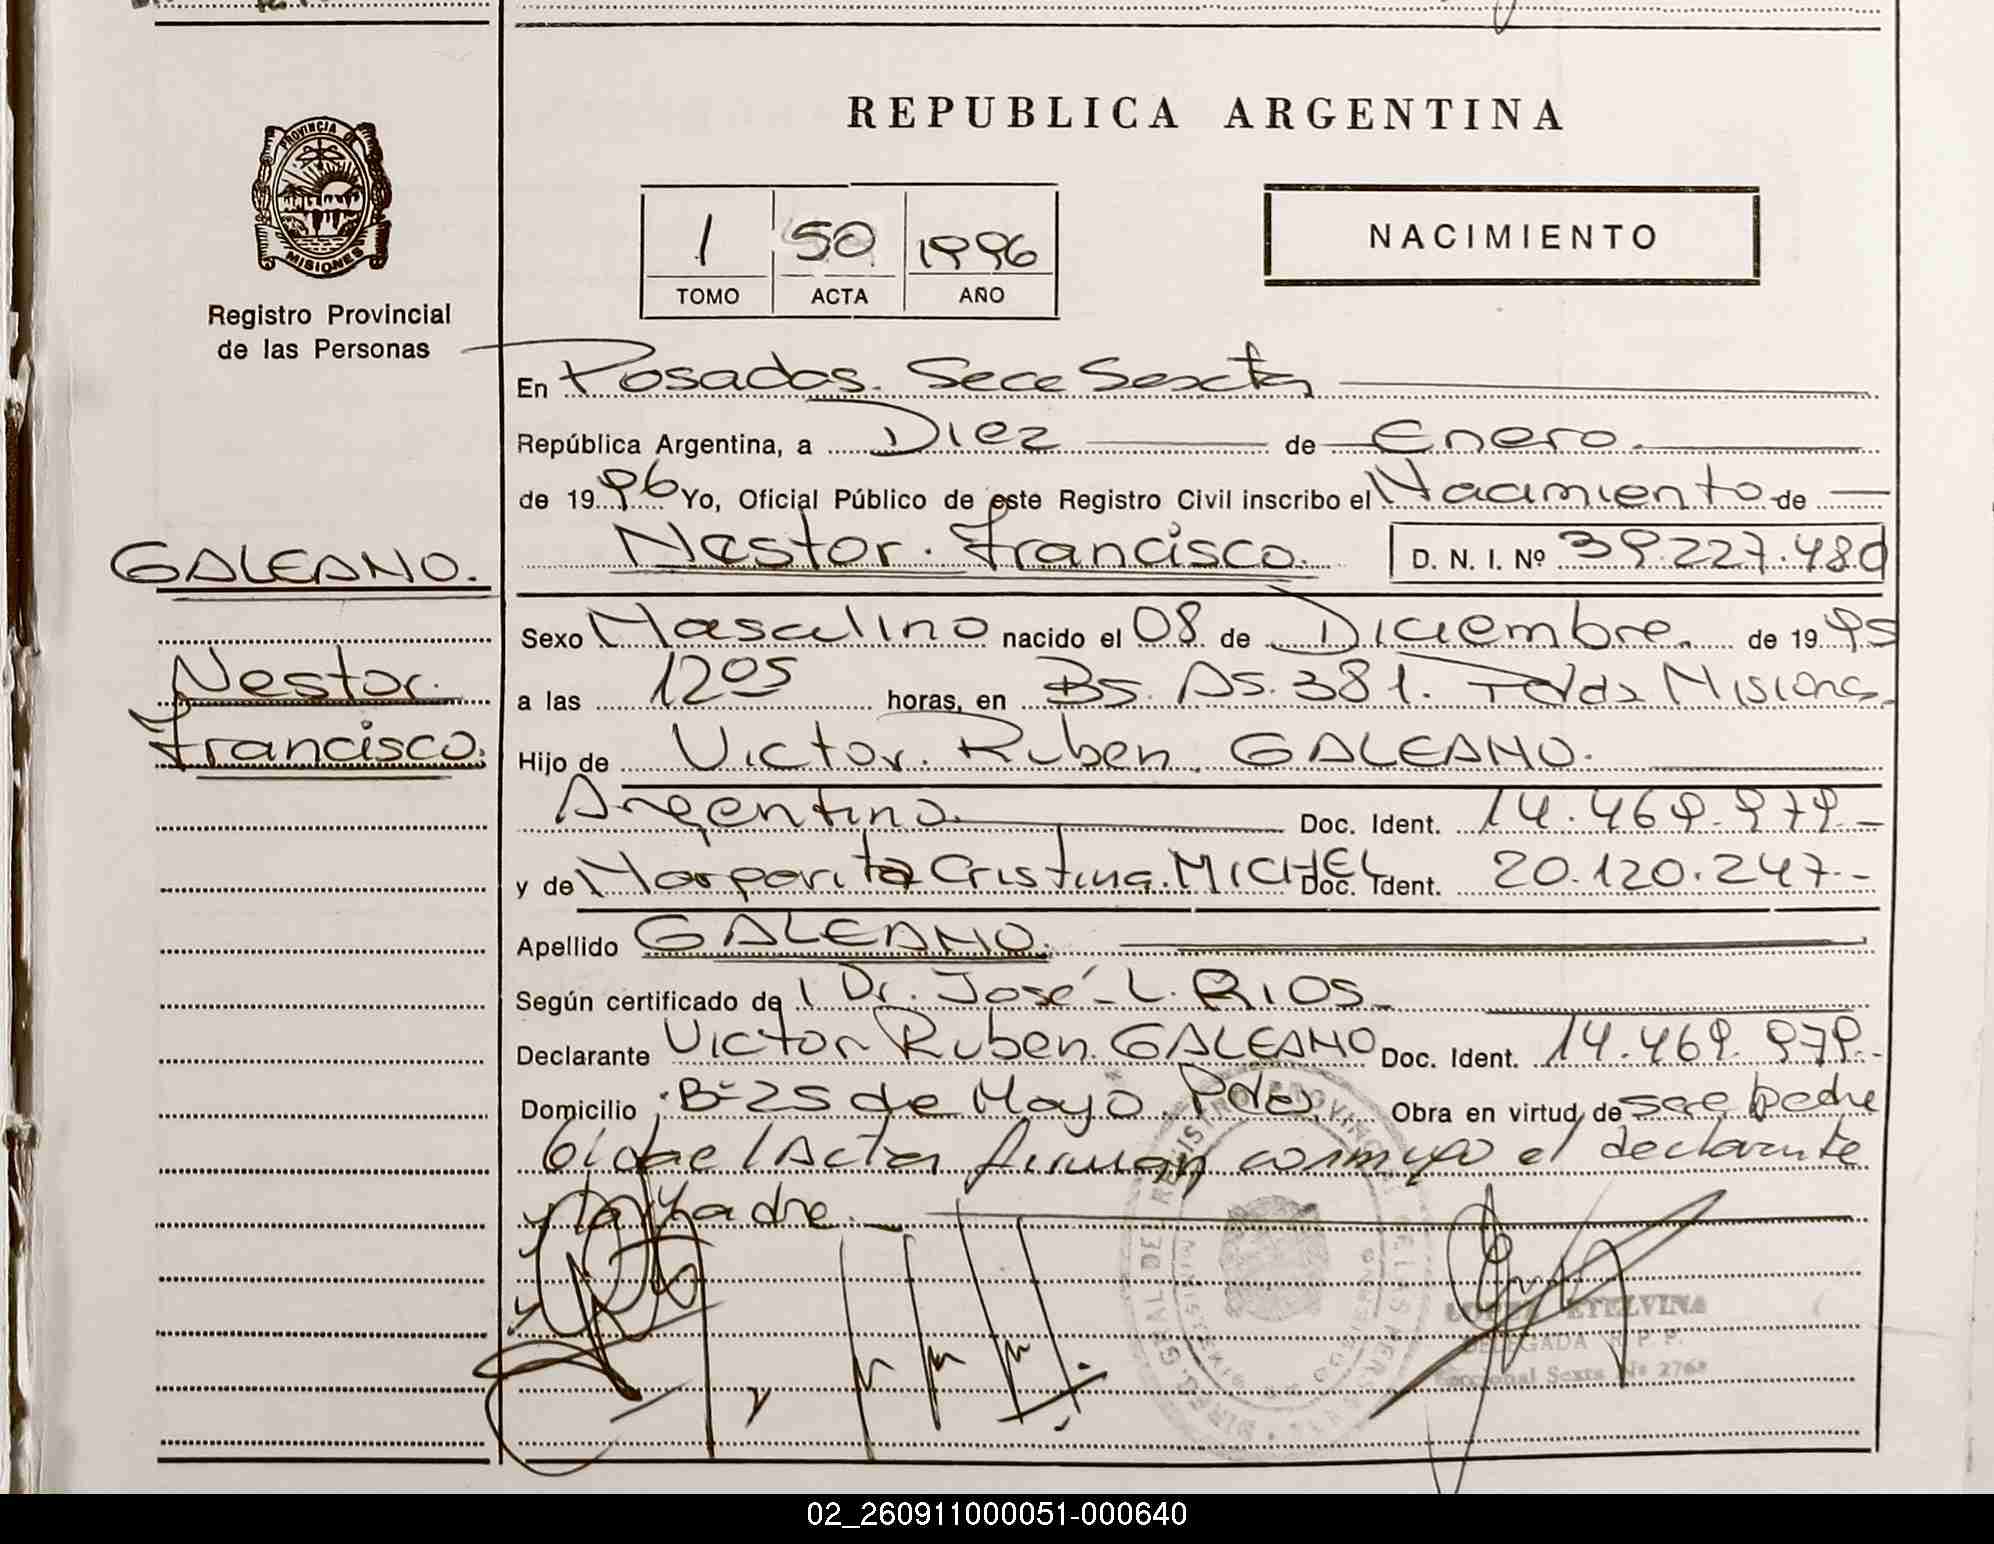 REPUBLICA ARGENTINA
PROVINCIA DE
MISIONES
Registro Provincial
de las Personas
1 50 1996
TOMO ACTA AÑO
NACIMIENTO
En Posadas. Secc Sexta
República Argentina, a Diez de Enero.
de 1996 Yo, Oficial Público de este Registro Civil inscribo el Nacimiento de
Nestor. Francisco. D. N. I. Nº 39.227.480
GALEANO.
Nestor.
Francisco.
Sexo Masculino nacido el 08 de Diciembre. de 1995
a las 1205 horas, en Bs. As. 381. Pdas Misiones
Hijo de Victor. Ruben. GALEANO.
Argentino. Doc. Ident. 14.469.979.-
y de Margarita Cristina. MICHEL Doc. Ident. 20.120.247.-
Apellido GALEANO.
Según certificado de l Dr. José L. RIOS.
Declarante Victor Ruben. GALEANO Doc. Ident. 14.469.979.-
Domicilio Bº 25 de Mayo Pdas. Obra en virtud de ser padre
el declarante
y la Madre.
LOPEZ ETELVINA
DELEGADA R. P. P.
Seccional Sexta Nº 276
02_260911000051-000640